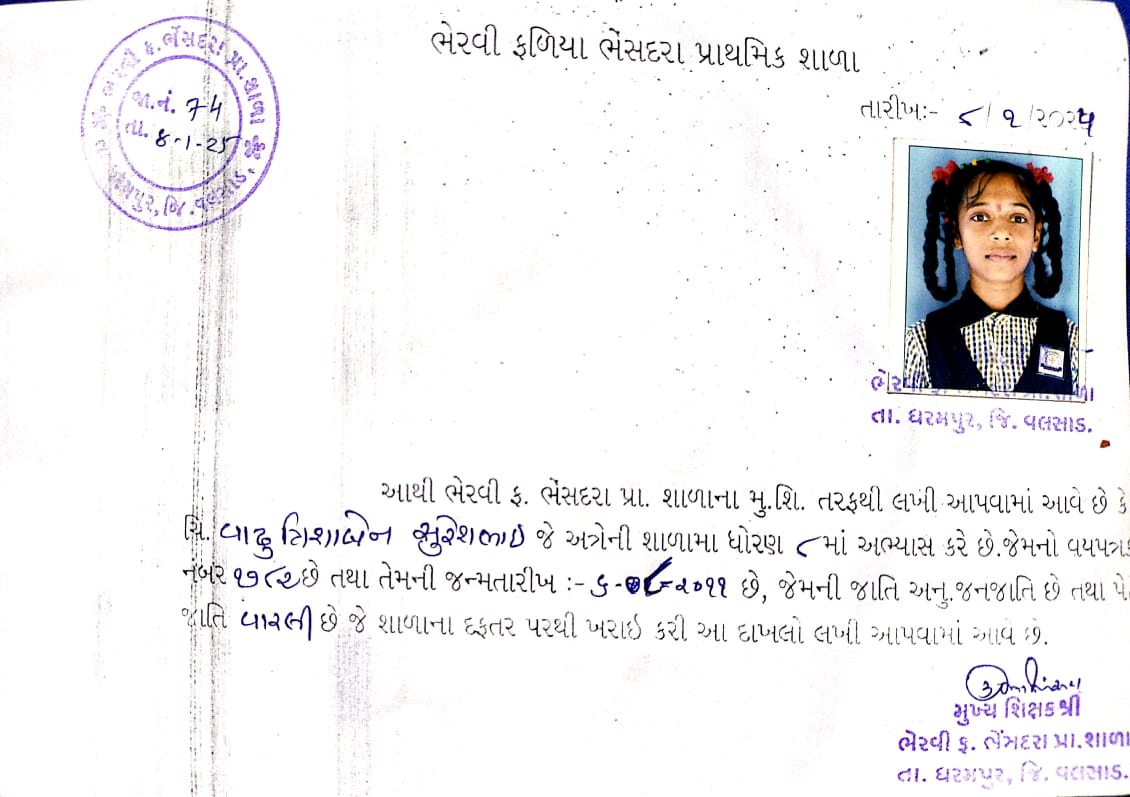 ભેરવી ફળિયા ભેંસદરા પ્રાથમિક શાળા
તારીખઃ- ૮/૧/૨૦૨૫
ભેરવી ફ. ભેંસદરા પ્રા. શાળા
જા.નં. 74
તા. 8-1-25
ધરમપુર, જિ. વલસાડ.
પ્રા.શાળા
તા. ધરમપુર, જિ. વલસાડ.
આથી ભેરવી ફ. ભેંસદરા પ્રા. શાળાના મુ.શિ. તરફથી લખી આપવામાં આવે છે કે
ચિ. વાઢુ ત્રિશાબેન સુરેશભાઇ જે અત્રેની શાળામા ધોરણ ૮માં અભ્યાસ કરે છે.જેમનો વયપત્રક
નંબર ૧૭૮૨ છે તથા તેમની જન્મતારીખ :- ૬- -૨૦૧૧ છે, જેમની જાતિ અનુ.જનજાતિ છે તથા પે
જાતિ વારલી છે જે શાળાના દફતર પરથી ખરાઇ કરી આ દાખલો લખી આપવામાં આવે છે.
મુખ્ય શિક્ષકશ્રી
ભેરવી ફ. ભેંસદરા પ્રા.શાળા
તા. ધરમપુર, જિ. વલસાડ.